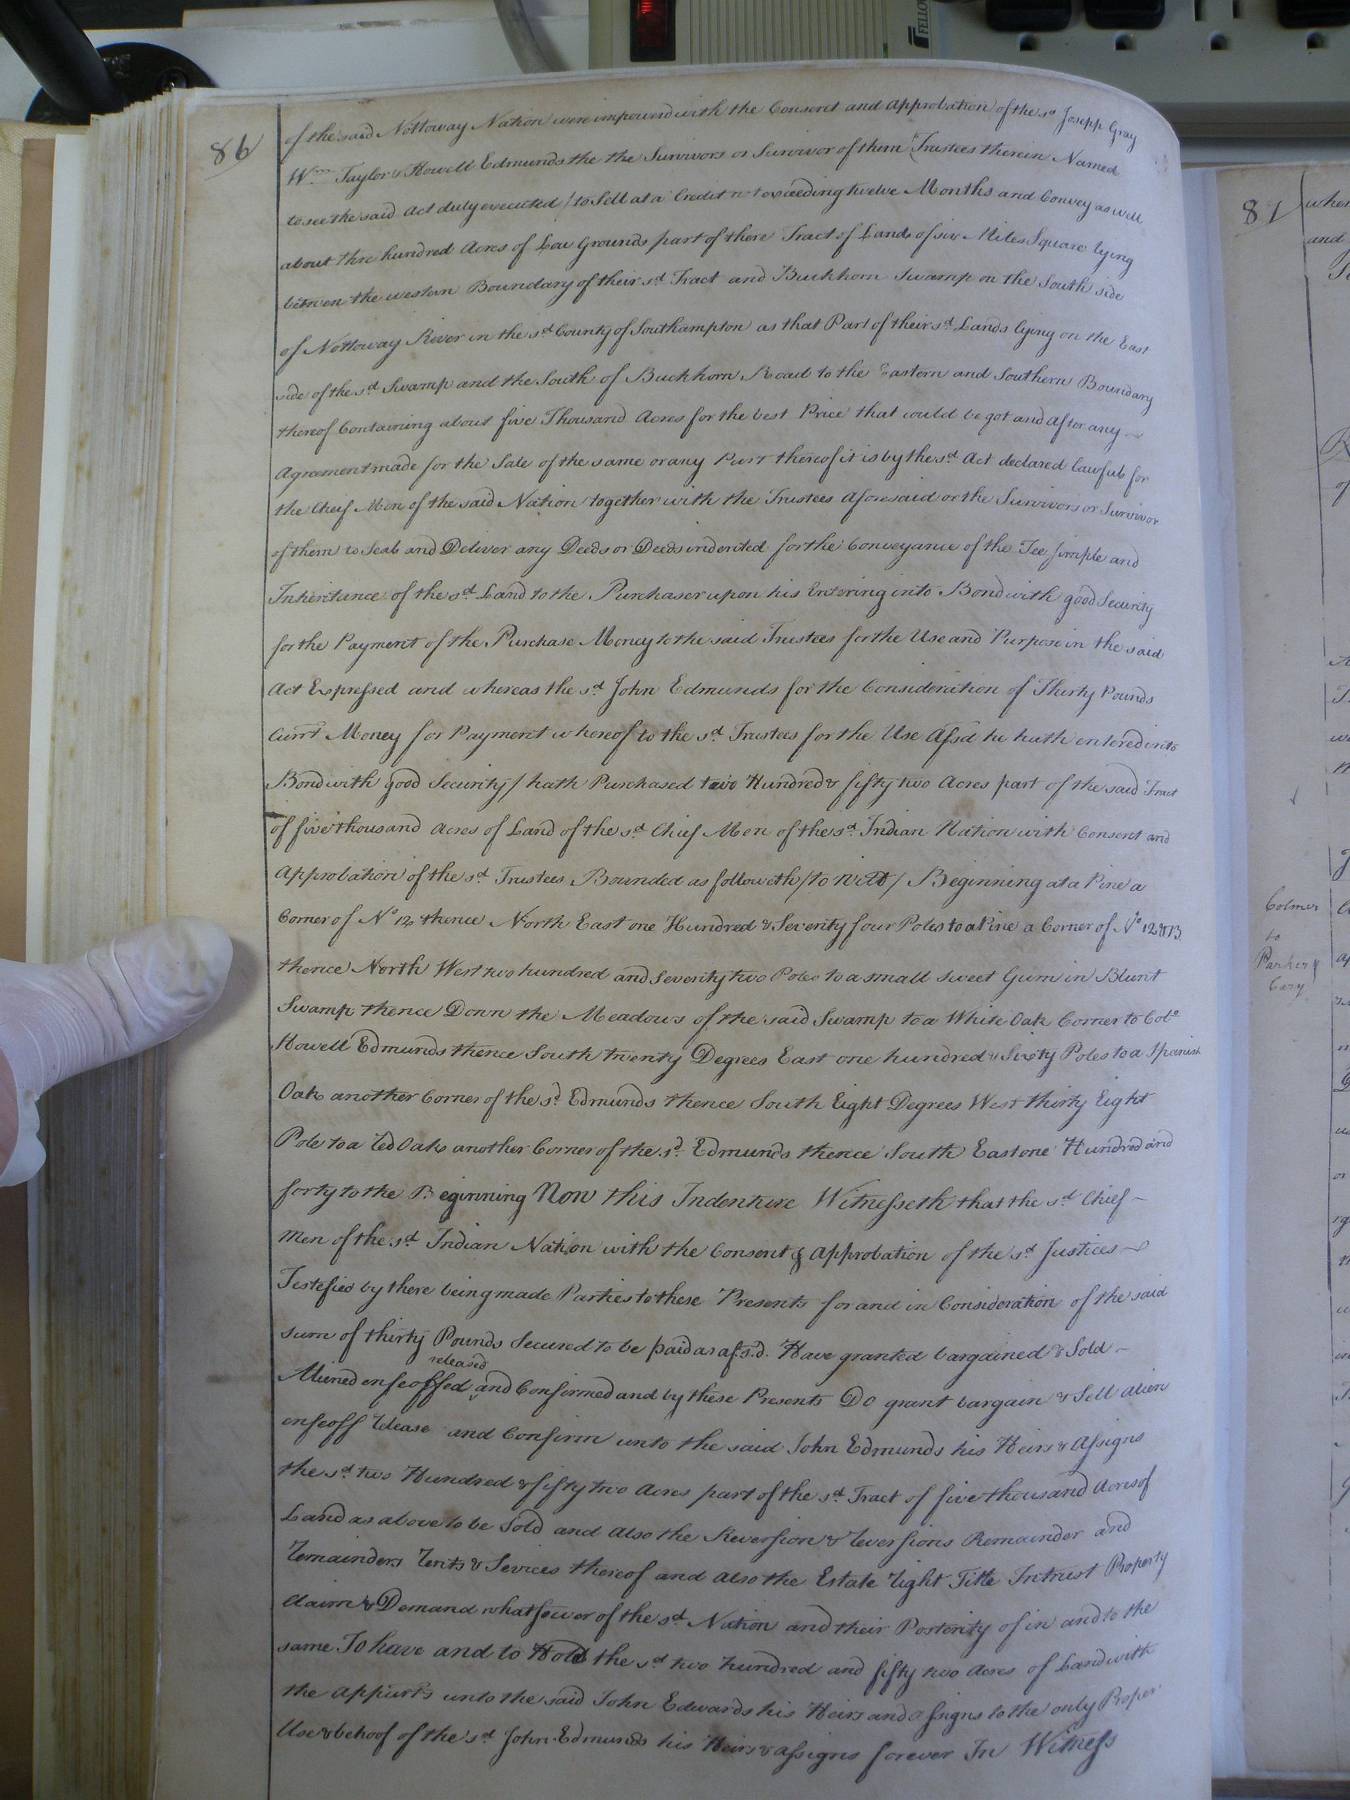 86
of the said Nottoway Nation were impowerd with the Consent and Approbation of the sd Josepp Gray
Wm Taylor & Howell Edmunds the the Survivors or Survivor of them (Trustees therein Named
to see the said Act duly executed / to Sell at a Credit not exceeding twelve Months and Convey as well
about thre hundred Acres of Low Grounds part of there Tract of Land of six Miles Square lying
between the western Boundary of their sd Tract and Buckhorn Swamp on the South side
of Nottoway River in the sd County of Southampton as that Part of their sd Lands lying on the East
side of the sd Swamp and the South of Buckhorn Road to the Eastern and Southern Boundary
thereof Containing about five Thousand Acres for the best Price that could be got and after any
Agreement made for the Sale of the same or any Part thereof it is by the sd Act declared lawfub for
the Cheif Men of the said Nation together with the Trustees Aforesaid or the Survivors or Survivor
of them to Seal and Deliver any Deeds or Deeds indented for the Conveyance of the Fee simple and
Inheritance of the sd Land to the Purchaser upon his Entering into Bond with good Security
for the Payment of the Purchase Money to the said Trustees for the Use and Purpose in the said
Act Expressed and whereas the sd John Edmunds for the Consideration of Thirty Pounds
Currt Money for Payment whereof to the sd Trustees for the Use Afsd he hath entered into
Bond with good Security / hath Purchased two Hundred & fifty two Acres part of the said Tract
of five thousand Acres of Land of the sd Chief Men of the sd Indian Nation with Consent and
Approbation of the sd Trustees Bounded as followeth / to witt / Beginning at a Pine a
Corner of No 12 thence North East one Hundred & Seventy four Poles to a Pine a Corner of No 12 & 13
thence North West two hundred and Seventy two Poles to a small sweet Gum in Blunt
Swamp thence Down the Meadows of the said Swamp to a White Oak Corner to Colo
Howell Edmunds thence South twenty Degrees East one hundred & Sixty Poles to a Spanish
Oak another Corner of the sd Edmunds thence South Eight Degrees West thirty Eight
Pole to a red Oak another Corner of the sd Edmunds thence South East one Hundred and
forty to the Beginning Now this Indenture Witnesseth that the sd Chief
Men of the sd Indian Nation with the Consent & Approbation of the sd Justices
Testefied by there being made Parties to these Presents for and in Consideration of the said
sum of thirty Pounds Secured to be paid as afsd. Have granted bargained & Sold
released
Aliened enfeoffed and Confirmed and by these Presents Do grant bargain & Sell alien
enfeoff release and Confirm unto the said John Edmunds his Heirs & Assigns
the sd two Hundred & fifty two Acres part of the sd Tract of five thousand Acres of
Land as above to be Sold and also the Reversion & reversions Remainder and
remainders rents & Sevices thereof and also the Estate right Title Intrust Property
Claim & Demand whatsower of the sd Nation and their Posterity of in and to the
same To have and to Hold the sd two hundred and fifty two Acres of Land with
the Appurts unto the said John Edwards his Heirs and assigns to the only Proper
Use & behoof of the sd John Edmunds his Heirs & assigns forever In Witness
87
when
and
Colmer
to
Parker &
Cary